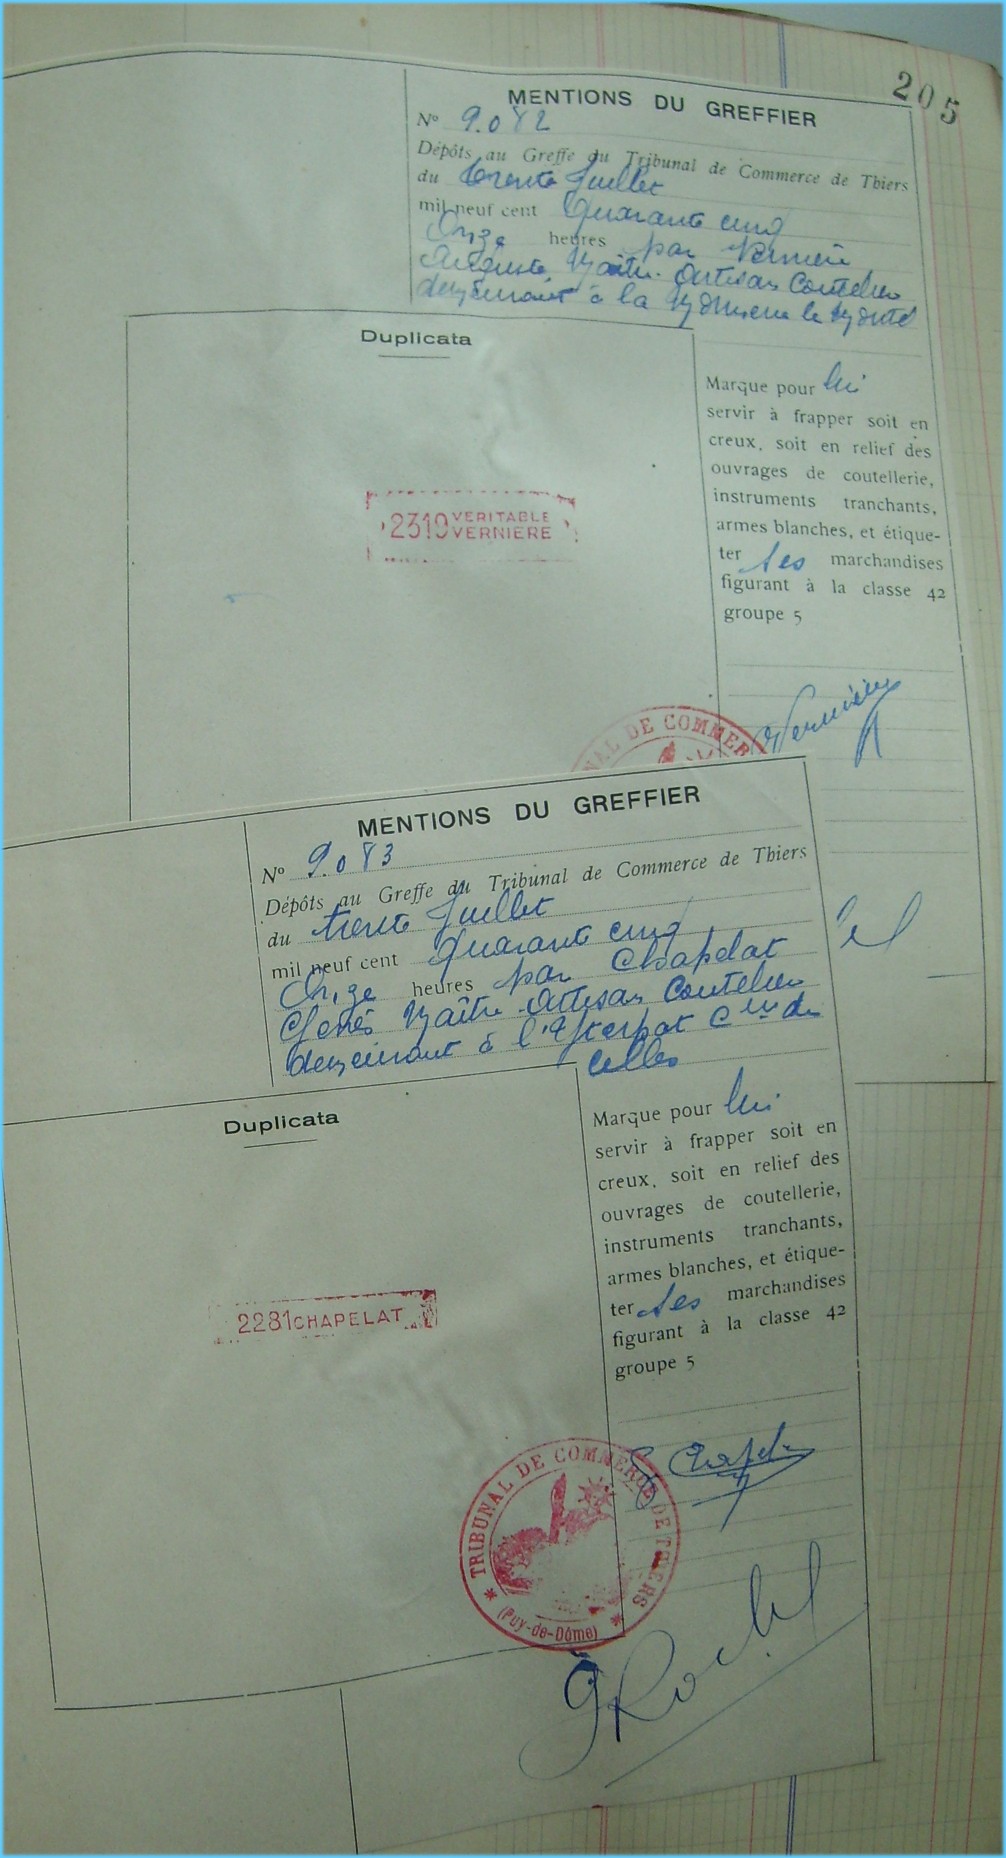 205
MENTIONS DU GREFFIER
No 9.082
Dépôts au Greffe du Tribunal de Commerce de Thiers
du trente Juillet
mil neuf cent Quarante cinq
Onze heures par Vernière
Auguste Maître Artisan Coutelier
demeurant à la
Duplicata
Marque pour lui
servir à frapper soit en
creux, soit en relief des
ouvrages de coutellerie,
instruments tranchants,
armes blanches, et étique-
ter ses marchandises
figurant à la classe 42
groupe 5
2319 VERITABLE
VERNIERE
Vernière
NAL DE COMMER
MENTIONS DU GREFFIER
No 9.083
Dépôts au Greffe du Tribunal de Commerce de Thiers
du trente Juillet
mil neuf cent Quarante cinq
Onze heures par Chapelat
Genès Maître Artisan Coutelier
demeurant à Cne de
Celles
Duplicata
Marque pour lui
servir à frapper soit en
creux, soit en relief des
ouvrages de coutellerie,
instruments tranchants,
armes blanches, et étique-
ter ses marchandises
figurant à la classe 42
groupe 5
2281 CHAPELAT
TRIBUNAL DE COMMERCE DE THIERS
(Puy-de-Dôme)